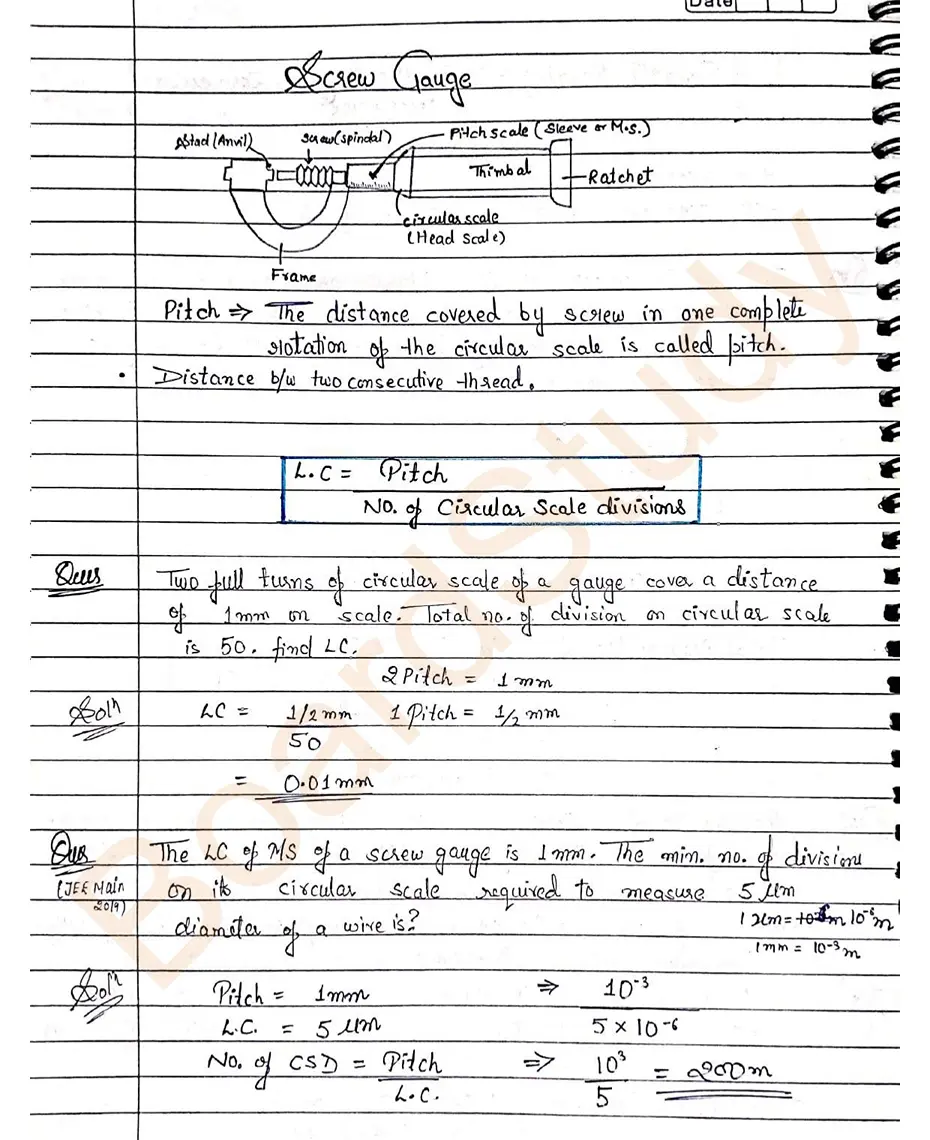 Date
Screw Gauge
Stad (Anvil)
screw (spindal)
Pitch scale (Sleeve or M.S.)
Thimbal
Ratchet
circular scale
(Head Scale)
Frame
Pitch ⇒ The distance covered by screw in one complete
rotation of the circular scale is called pitch.
• Distance b/w two consecutive thread.
L.C = Pitch
No. of Circular Scale divisions
Ques Two full turns of circular scale of a gauge cover a distance
of 1mm on scale. Total no. of division on circular scale
is 50. find LC.
2 Pitch = 1 mm
Solⁿ LC = 1/2 mm 1 Pitch = 1/2 mm
50
= 0.01mm
Ques The LC of MS of a screw gauge is 1mm. The min. no. of divisions
(JEE Main 2019) on its circular scale required to measure 5 μm
diameter of a wire is?
1 μm = 10⁻⁶m
1mm = 10⁻³m
Solⁿ Pitch = 1mm ⇒ 10⁻³
L.C. = 5 μm 5 × 10⁻⁶
No. of CSD = Pitch ⇒ 10³ = 200m
L.C. 5
BoardStudy